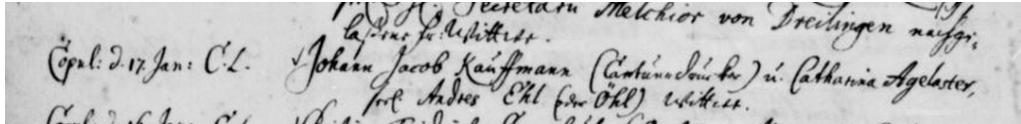 Secretarii Melchior von Dreilingen nachge-
laßene Fr: Wittwe.
Copul: d. 17. Jan: C. L. Johann Jacob Kauffmann (Cartundrucker) u. Catharina Agelaster,
seel. Andres Ehl (oder Öhl) Wittwe.